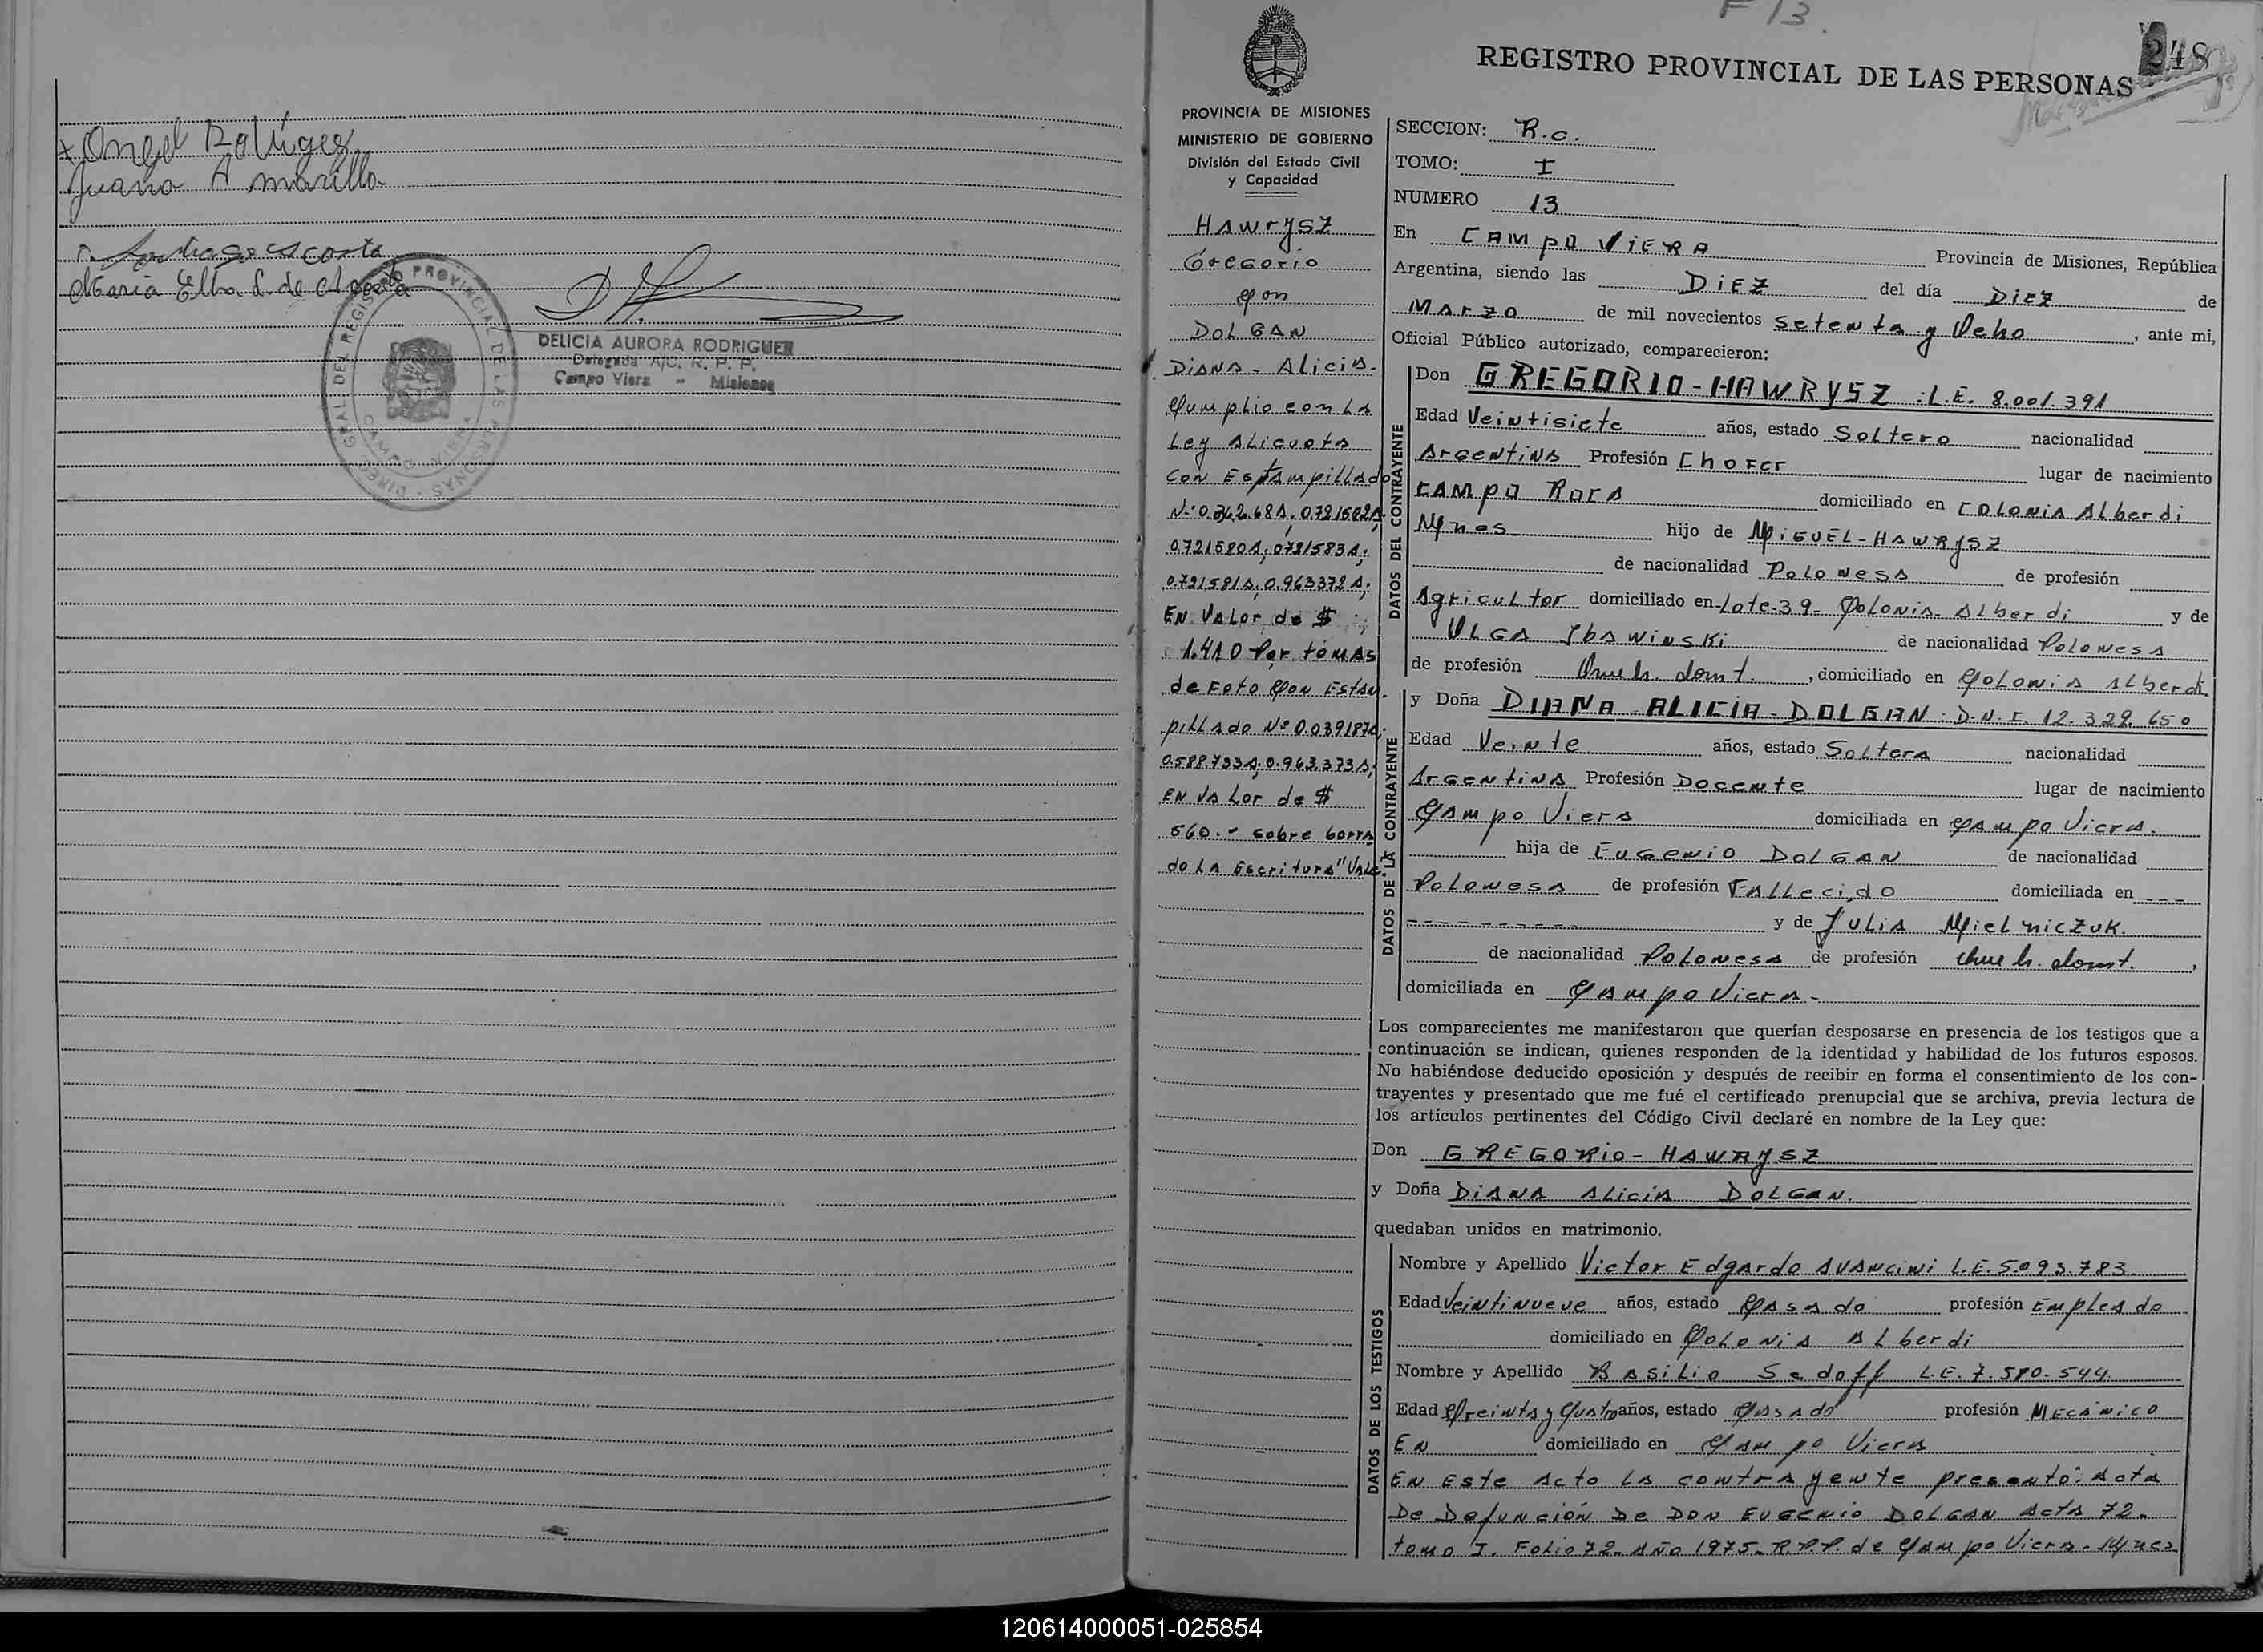 Angel Rodriguez
Juana Amarilla
Santiago Acosta
Maria Elba L. de Acosta
DIREC. GRAL DEL REGISTRO PROVINCIAL DE LAS PERSONAS
CAMPO VIERA
DELICIA AURORA RODRIGUER
Delegada A/C. R. P. P.
Campo Viera - Misiones
F 13
248
REGISTRO PROVINCIAL DE LAS PERSONAS
PROVINCIA DE MISIONES
MINISTERIO DE GOBIERNO
División del Estado Civil
y Capacidad
Hawrysz
Gregorio
Con
DOLGAN
DIANA - Alicia -
Cumplio con La
Ley Alicuota
CON Estampillado
N.º 0.362.68A, 0.721582A,
0.721580A; 0721583A;
0.721581A, 0.963372A;
EN VALor de $
1.410 Por tomas
de Foto Con Estam-
pillado Nº 0.039187A;
0.588.733A; 0.963.373A;
EN VALor de $
560.- sobre borra
do LA Escritura "Vale."
SECCION: R.c.
TOMO: I
NUMERO 13
En CAMPO VIERA Provincia de Misiones, República
Argentina, siendo las DIEZ del día DIEZ de
MARZO de mil novecientos setenta y Ocho, ante mi,
Oficial Público autorizado, comparecieron:
DATOS DEL CONTRAYENTE
Don GREGORIO - HAWRYSZ : L.E. 8.001.391
Edad Veintisiete años, estado Soltero nacionalidad
ArgentinA Profesión Chofer lugar de nacimiento
CAMPO ROCA domiciliado en COLONIA Alberdi
Mnes hijo de MIGUEL - HAWRYSZ
de nacionalidad Polonesa de profesión
Agricultor domiciliado en - Lote - 39 - Colonia - Alberdi y de
OLGA IbAWINSKi de nacionalidad Polonesa
de profesión Queh. domt., domiciliado en Colonia Alberdi.
DATOS DE LA CONTRAYENTE
y Doña DIANA - ALICIA - DOLGAN : D.N.I. 12.329.650
Edad Veinte años, estado Soltera nacionalidad
Argentina Profesión Docente lugar de nacimiento
Campo Viera domiciliada en Campo Viera.
hija de EUGENIO DOLGAN de nacionalidad
Polonesa de profesión Fallecido domiciliada en ---
---------- y de JULIA Mielniczuk.
de nacionalidad Polonesa de profesión Queh. domt.,
domiciliada en Campo Viera -
Los comparecientes me manifestaron que querían desposarse en presencia de los testigos que a
continuación se indican, quienes responden de la identidad y habilidad de los futuros esposos.
No habiéndose deducido oposición y después de recibir en forma el consentimiento de los con-
trayentes y presentado que me fué el certificado prenupcial que se archiva, previa lectura de
los artículos pertinentes del Código Civil declaré en nombre de la Ley que:
Don GREGORIO - HAWRYSZ
y Doña DIANA ALICIA DOLGAN.
quedaban unidos en matrimonio.
DATOS DE LOS TESTIGOS
Nombre y Apellido Victor Edgardo AVANCINI L.E. 5.093.783
Edad Veintinueve años, estado Casado profesión Empleado
domiciliado en Colonia Alberdi
Nombre y Apellido Basilio Sadoff L.E. 7.580.544
Edad Treinta y Cuatro años, estado Casado profesión MECÁNICO
EN domiciliado en Campo Viera
EN Este Acto LA contrayente presentó: Acta
De Defunción De DON EUGENIO DOLGAN Acta 72.
tomo I. Folio 72. AÑO 1975. R.P.P. de Campo Viera - Mnes
120614000051-025854